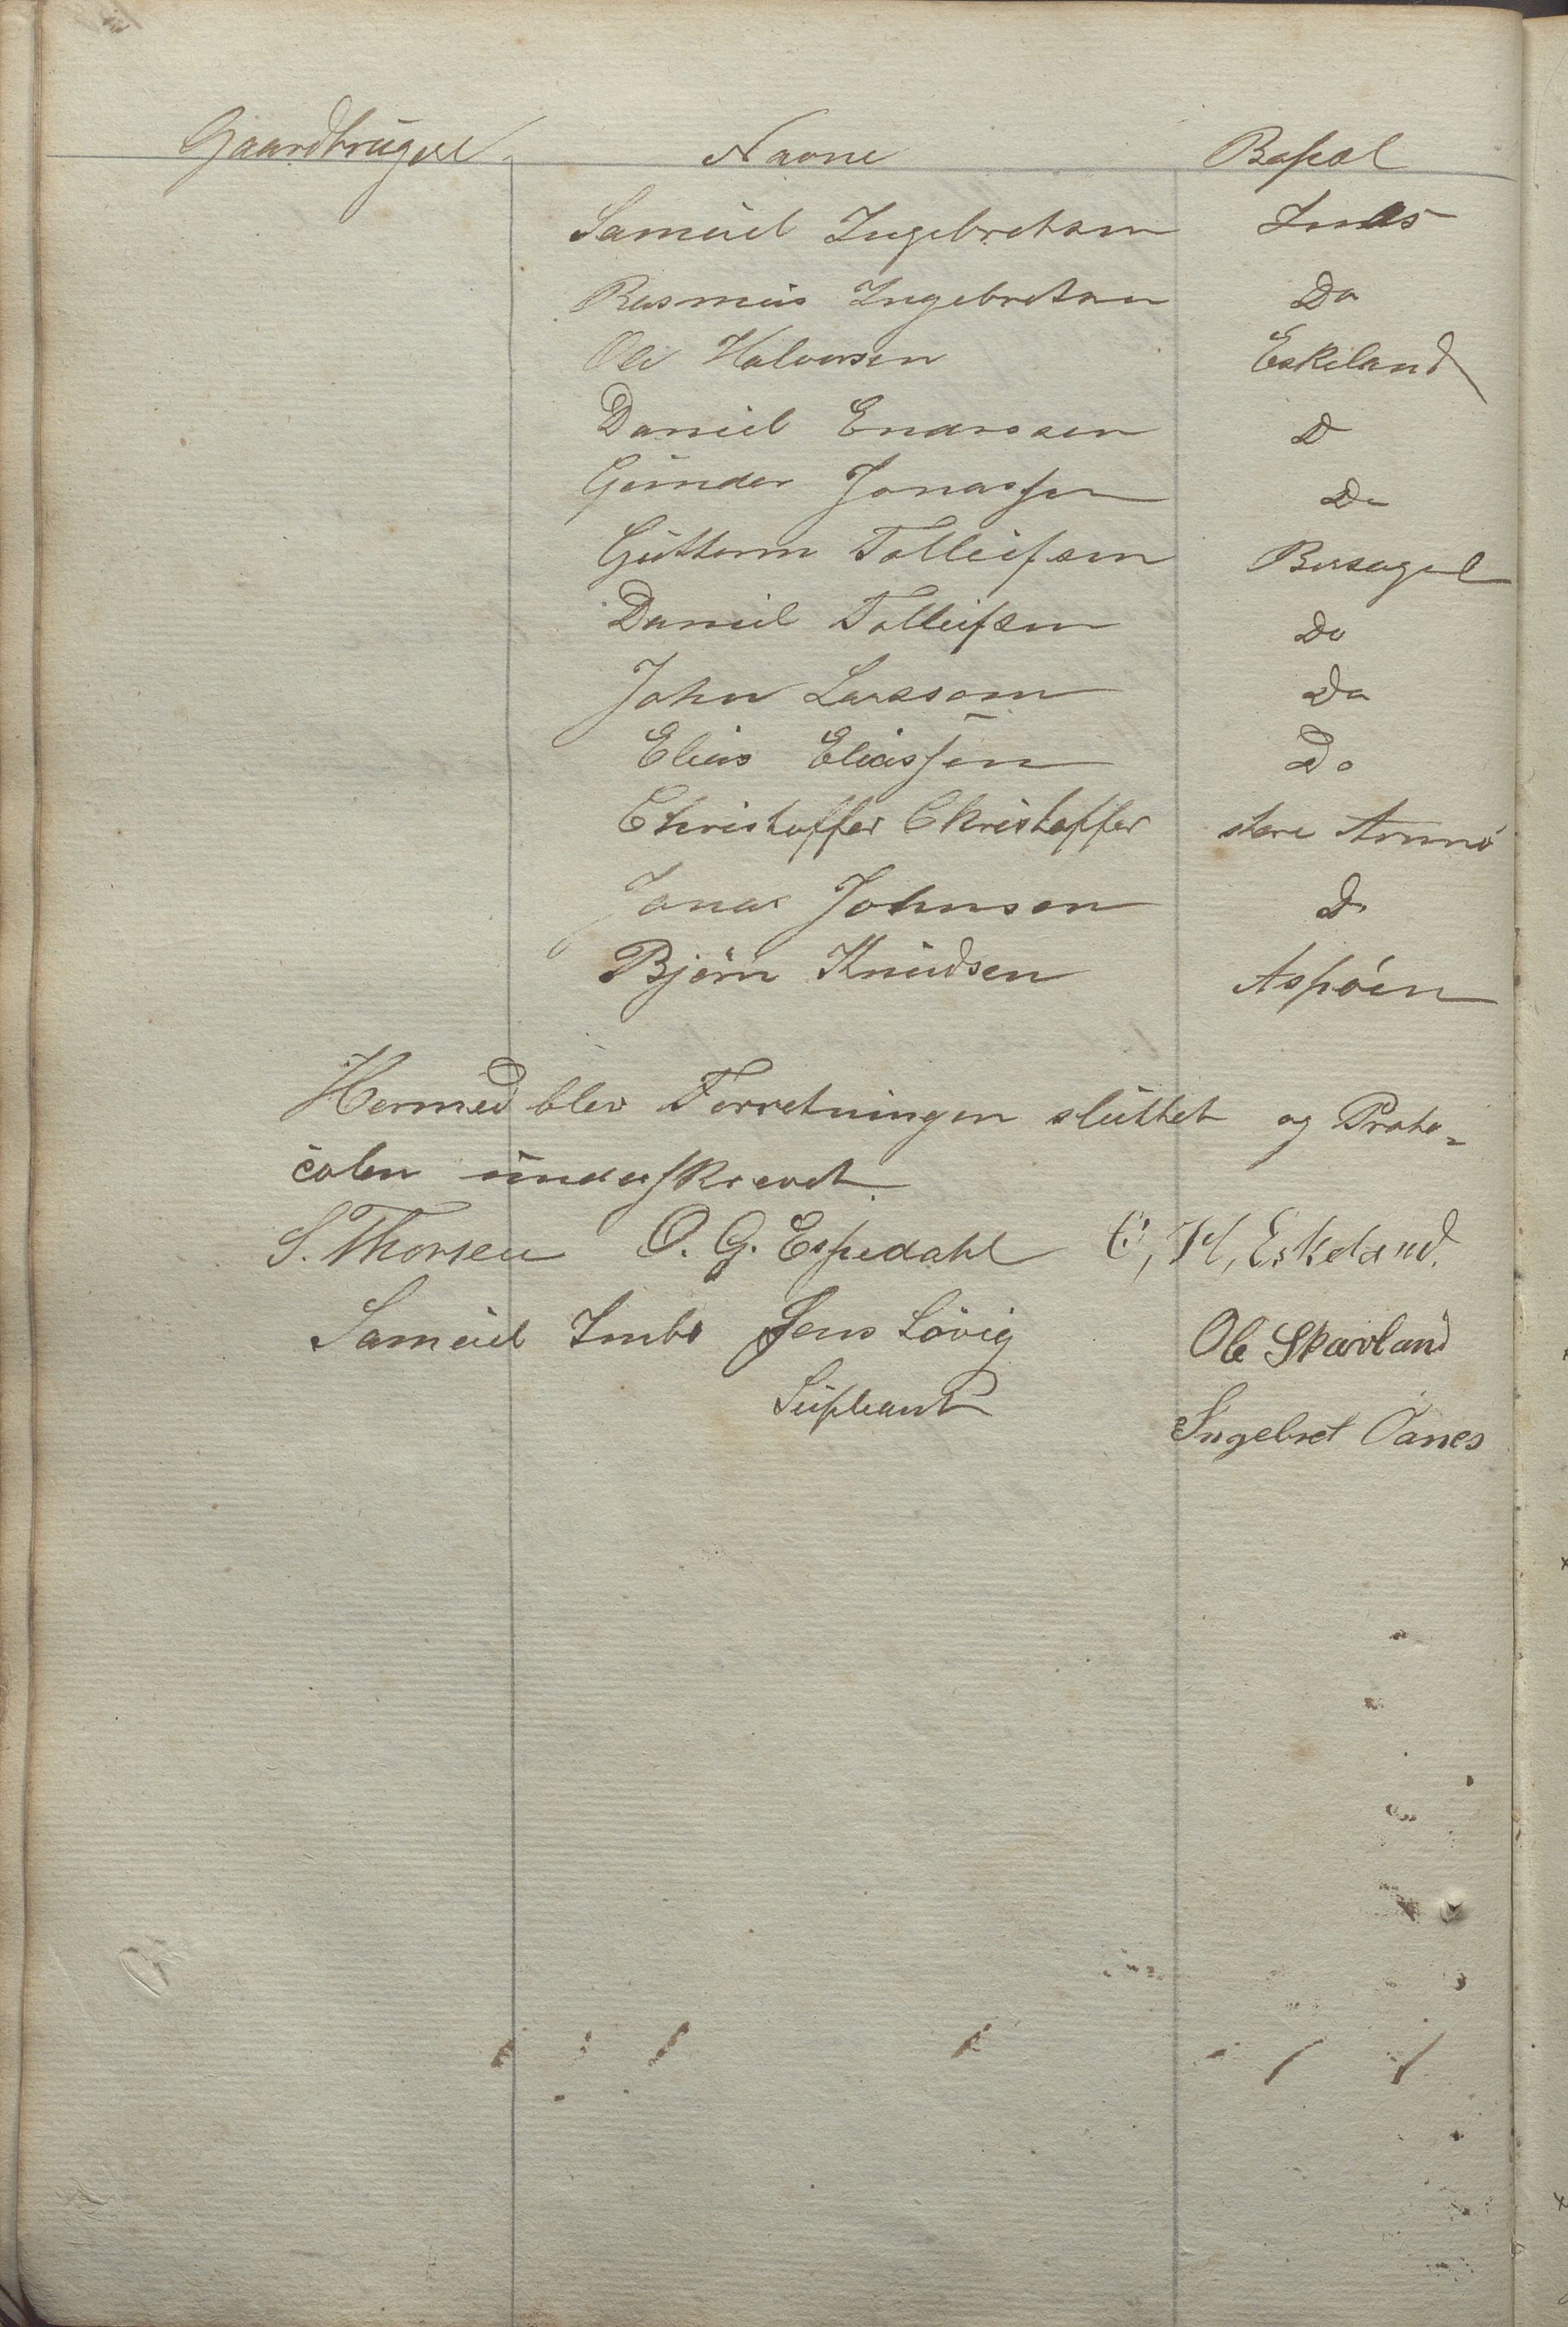 Gaardbrugere Navne Bopæl
Samuel Ingebretsen Imbs
Rasmus Ingebretsen Do
Ole Halvorsen Eskeland
Daniel Enarssen D
Gunder Jonassen Do
Guttorm Tolleifsen Bersagel
Daniel Tolleifsen Do
John Larssom Do
Elias Eliassen Do
Christoffer Christoffer store Ammø
Jonas Johnsen D
Bjørn Knudsen Aspøen
Hermed blev Forretningen sluttet og Proto-
colen underskrevet
S. Thorsen O. G. Espedahl O, H, Eskeland.
Samuel Imbs Jens Løvig Ole Skavland
Supleant
Ingebret Oanes